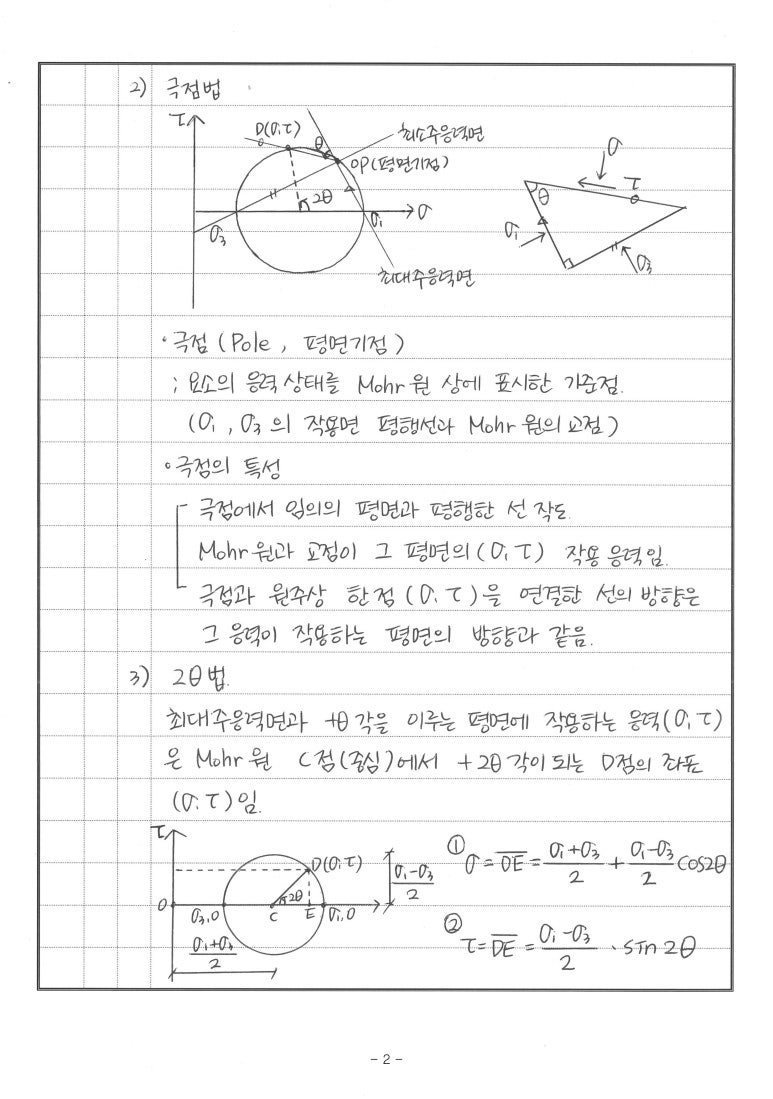 2) 극점법
τ
D(σ,τ)
θ
최소주응력면
OP(평면기점)
2θ
σ
σ₃
σ₁
최대주응력면
σ
τ
θ
σ₁
σ₃
· 극점 (Pole, 평면기점)
; 요소의 응력상태를 Mohr원 상에 표시한 기준점.
(σ₁, σ₃의 작용면 평행선과 Mohr원의 교점)
∘ 극점의 특성
극점에서 임의의 평면과 평행한 선 작도
Mohr원과 교점이 그 평면의 (σ, τ) 작용 응력임.
극점과 원주상 한점 (σ, τ)을 연결한 선의 방향은
그 응력이 작용하는 평면의 방향과 같음.
3) 2θ법.
최대주응력면과 +θ각을 이루는 평면에 작용하는 응력(σ, τ)
은 Mohr원 C점(중심)에서 +2θ각이 되는 D점의 좌표
(σ, τ)임.
τ
D(σ,τ)
2θ
0
σ₃,0
C
E
σ₁,0
(σ₁-σ₃)/2
(σ₁+σ₃)/2
① σ = OE = (σ₁+σ₃)/2 + (σ₁-σ₃)/2 cos2θ
② τ = DE = (σ₁-σ₃)/2 · sin2θ
- 2 -